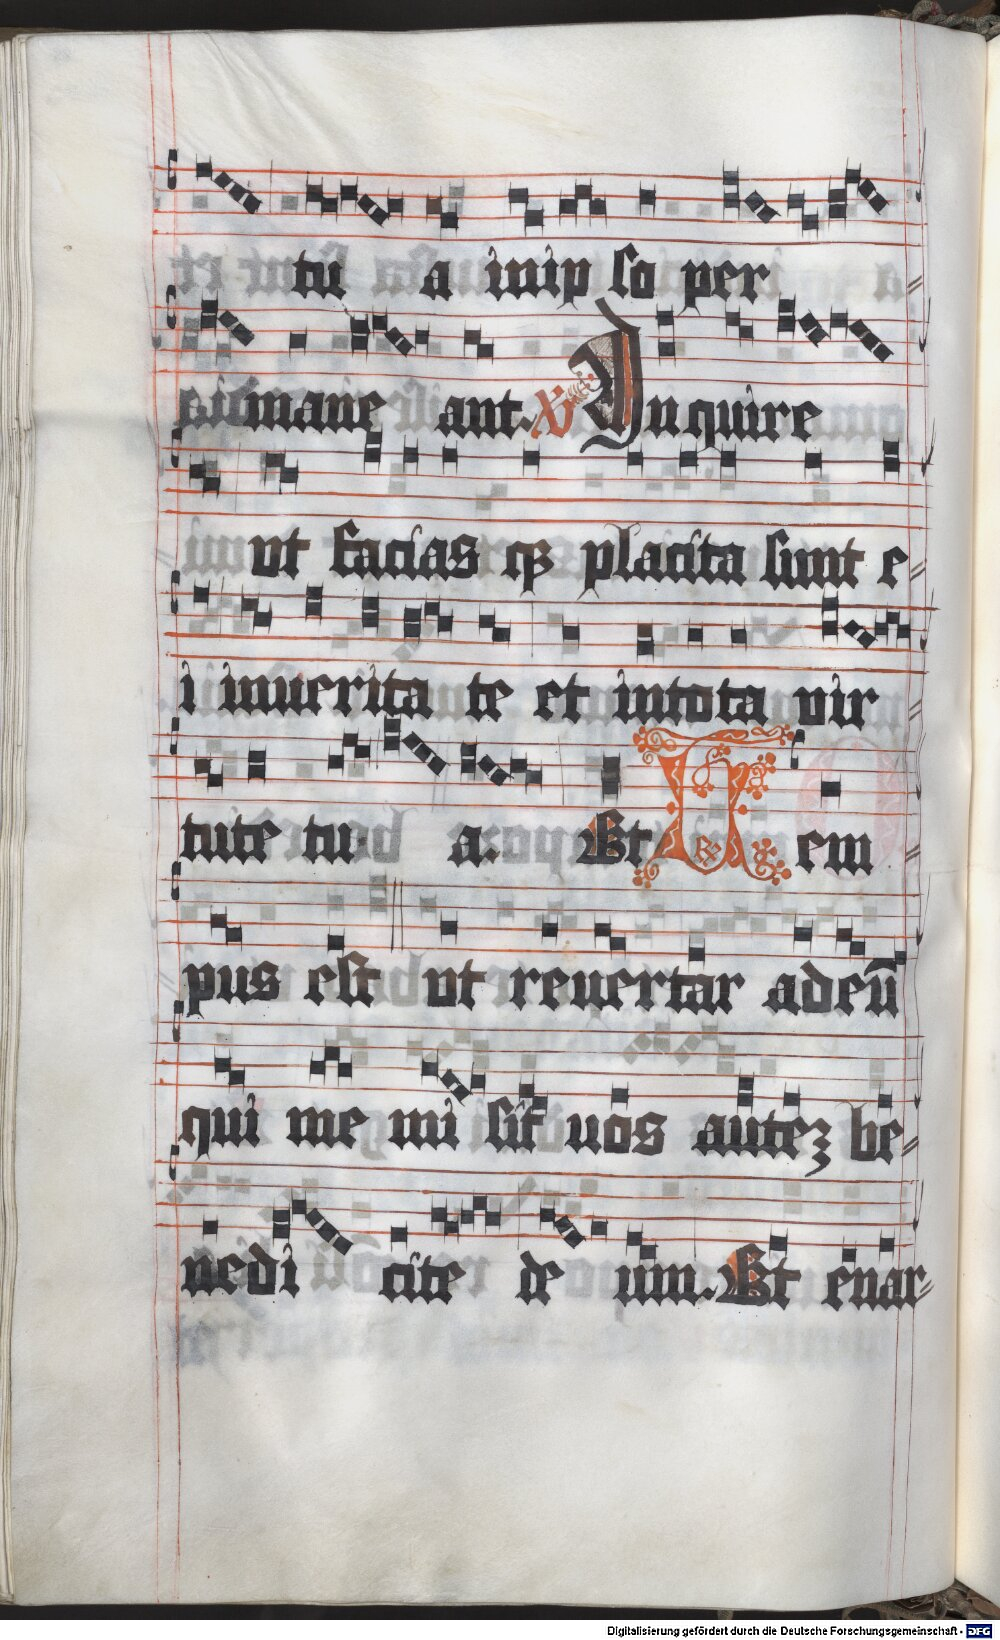 tu a inip so per
simane ant. v Inquire
vt facias qz placita sunt e
i inuerita te et intota vir
tute tu a. Et R Tem
pus est vt reuertar adeū
qui me mi sit uos autez be
nedi cite de um. Et enar
Digitalisierung gefördert durch die Deutsche Forschungsgemeinschaft - DFG